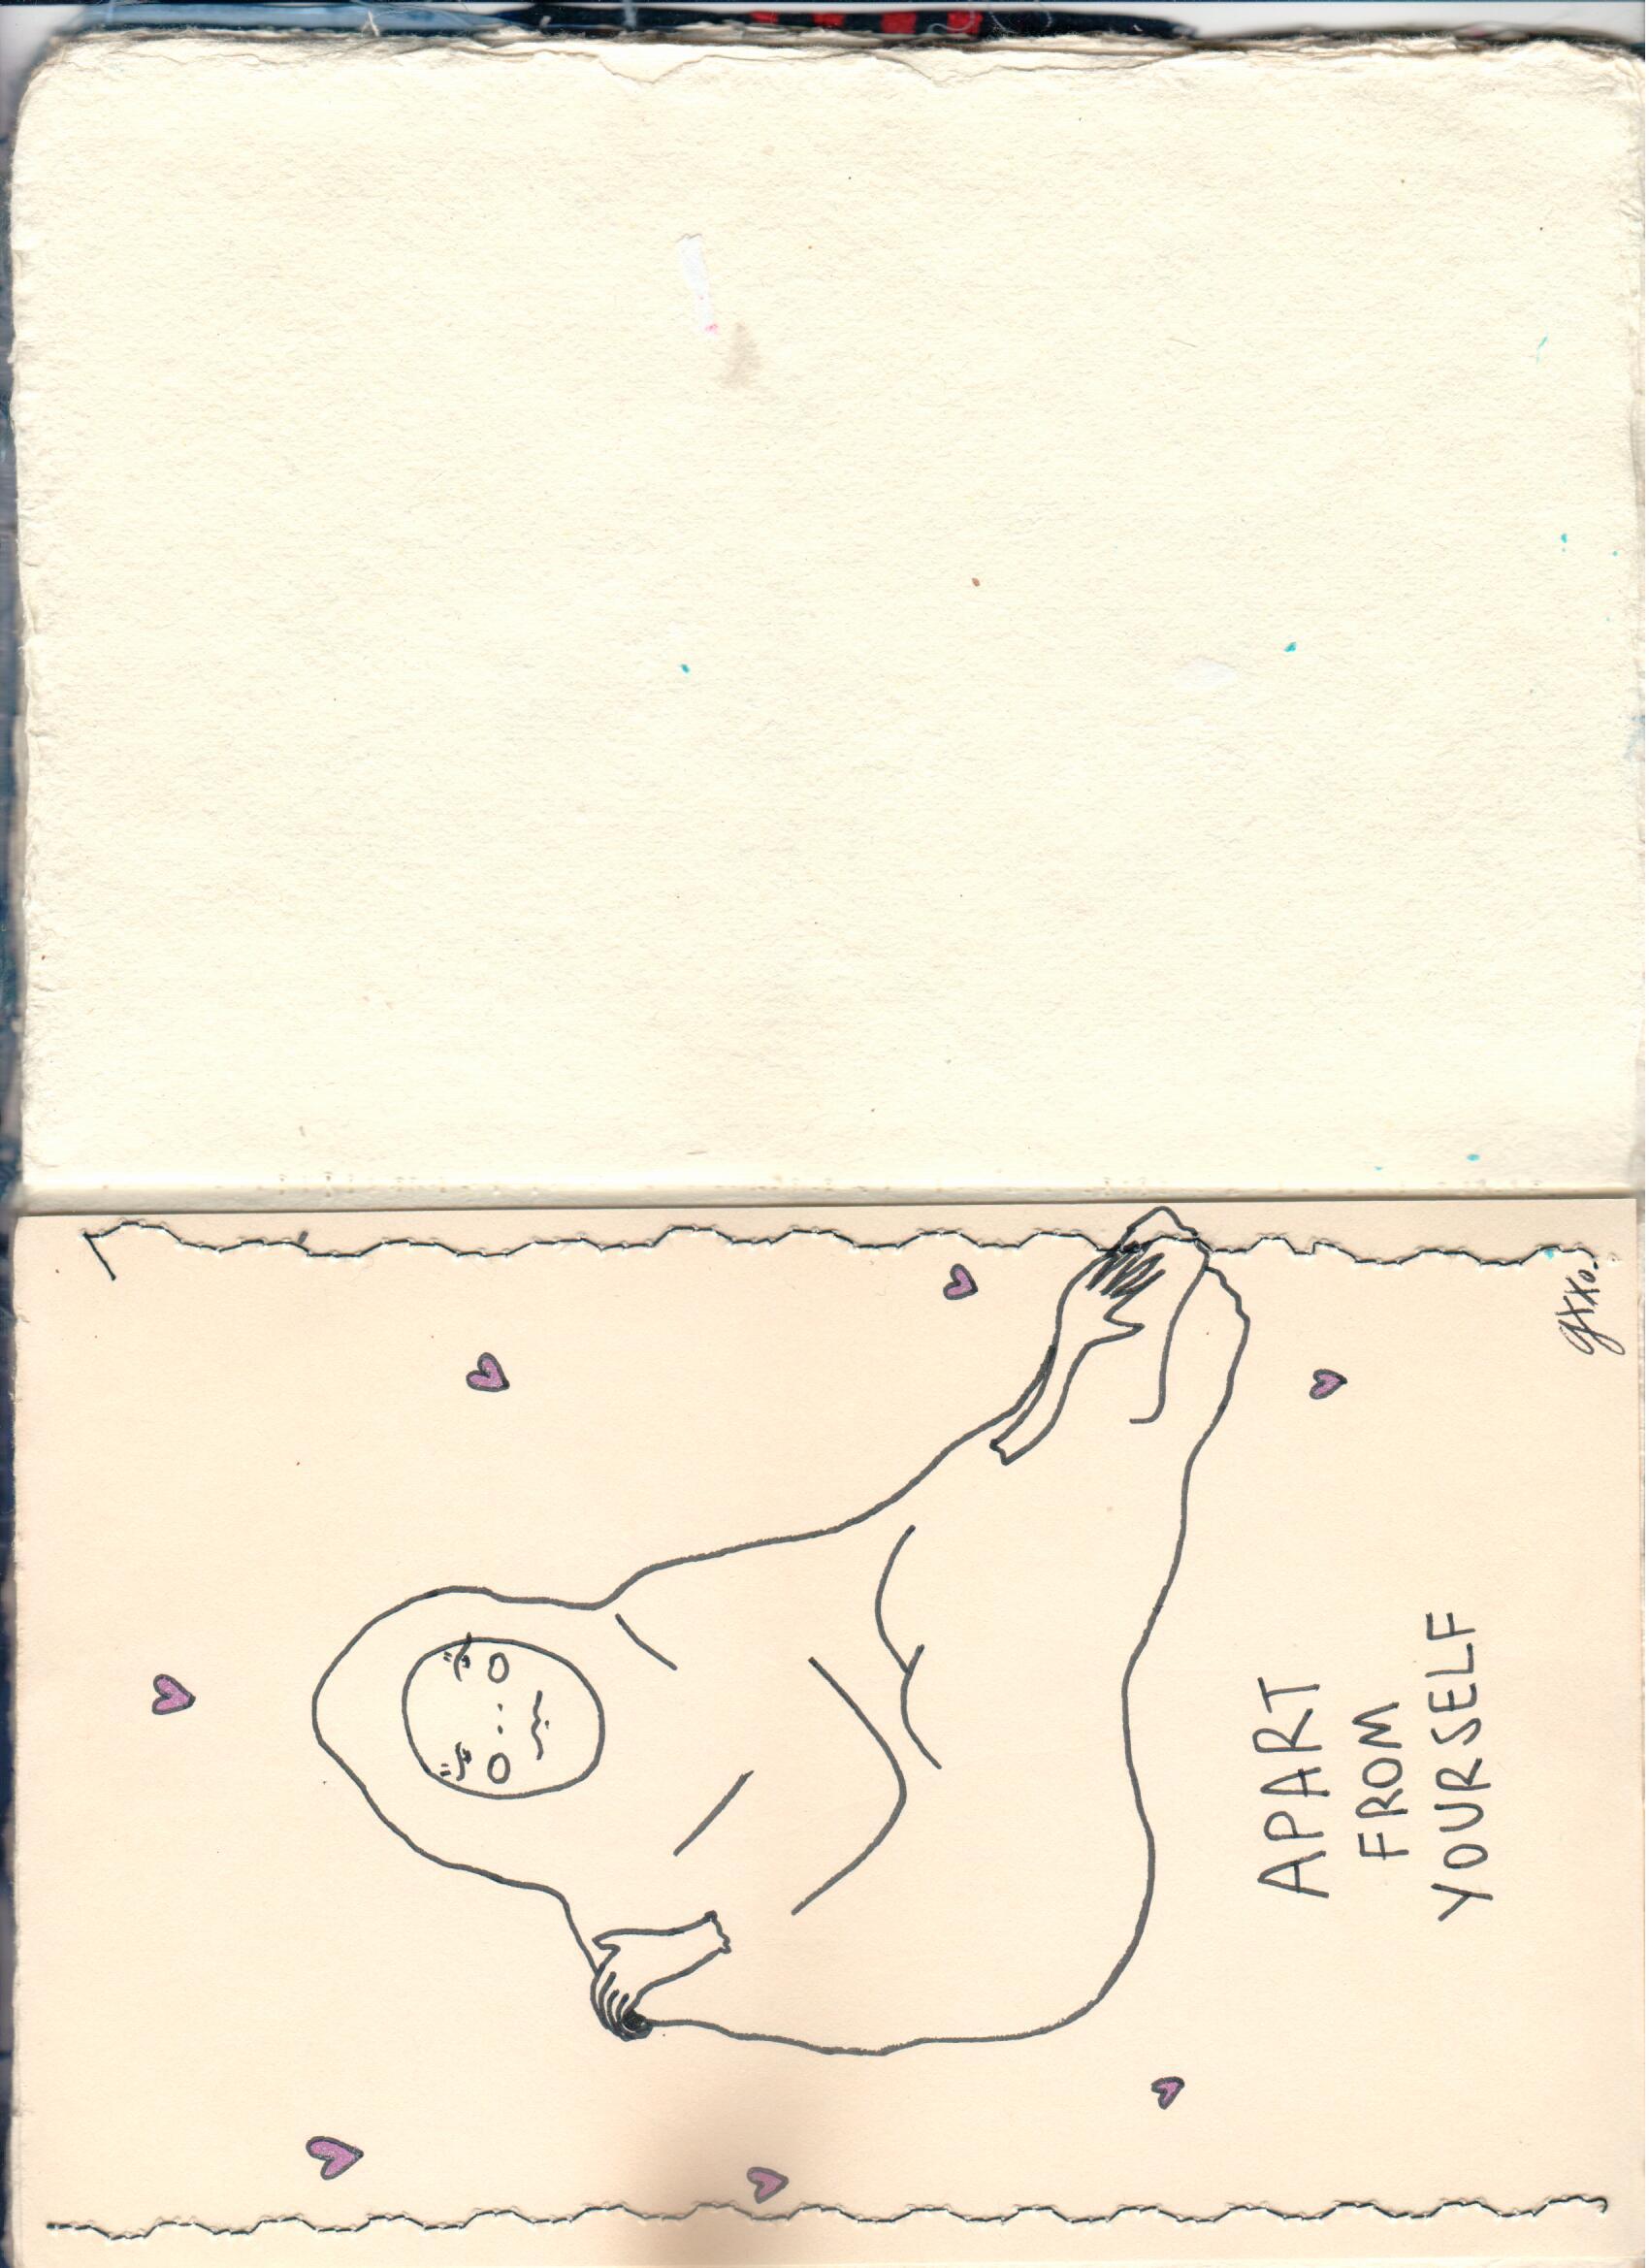 APART
FROM
YOURSELF
gxxo.